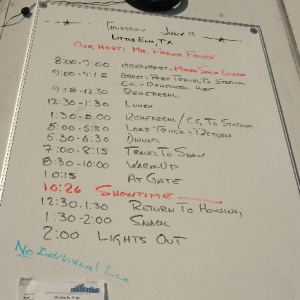 Thursday July 13
Little Elm, TX
Our Host: Mr. Frank Foust
8:00-9:00 Breakfast - Make Sack Lunch
9:00-9:15
9:15-12:30 Rehearsal
12:30-1:30 Lunch
1:30-5:00 Rehearsal / CG To Stadium
5:00-5:30 Load Truck + Return
5:30-6:30 Dinner
7:00-8:15 Travel To Show
8:30-10:00 Warm Up
10:15 At Gate
10:26 Showtime
12:30-1:30 Return To Housing
1:30-2:00 Snack
2:00 Lights Out
No Individual Ice